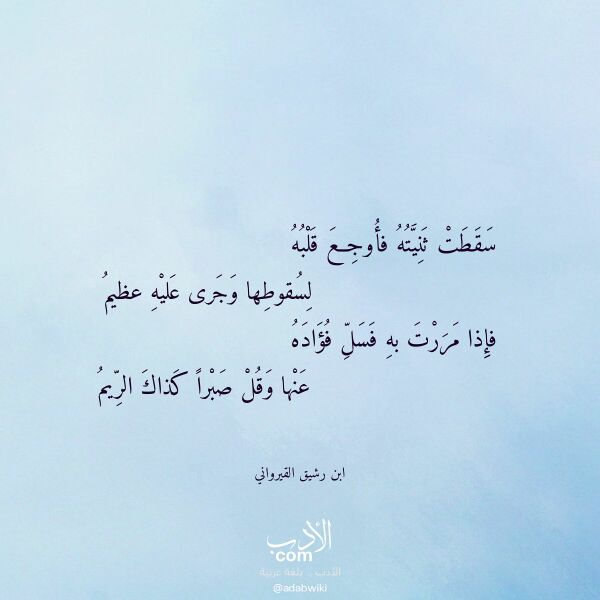 سَقَطَتْ ثَنِيَّتُهُ فأُوجِعَ قَلْبُهُ
لِسُقوطِها وَجَرى عَليْهِ عظيمُ
فإِذا مَرَرْتَ بهِ فَسَلِّ فُؤَادَهُ
عَنْها وَقُلْ صَبْراً كَذاكَ الرِّيمُ
ابن رشيق القيرواني
الأدب
com
الأدب .. بلغة عربية
@adabwiki